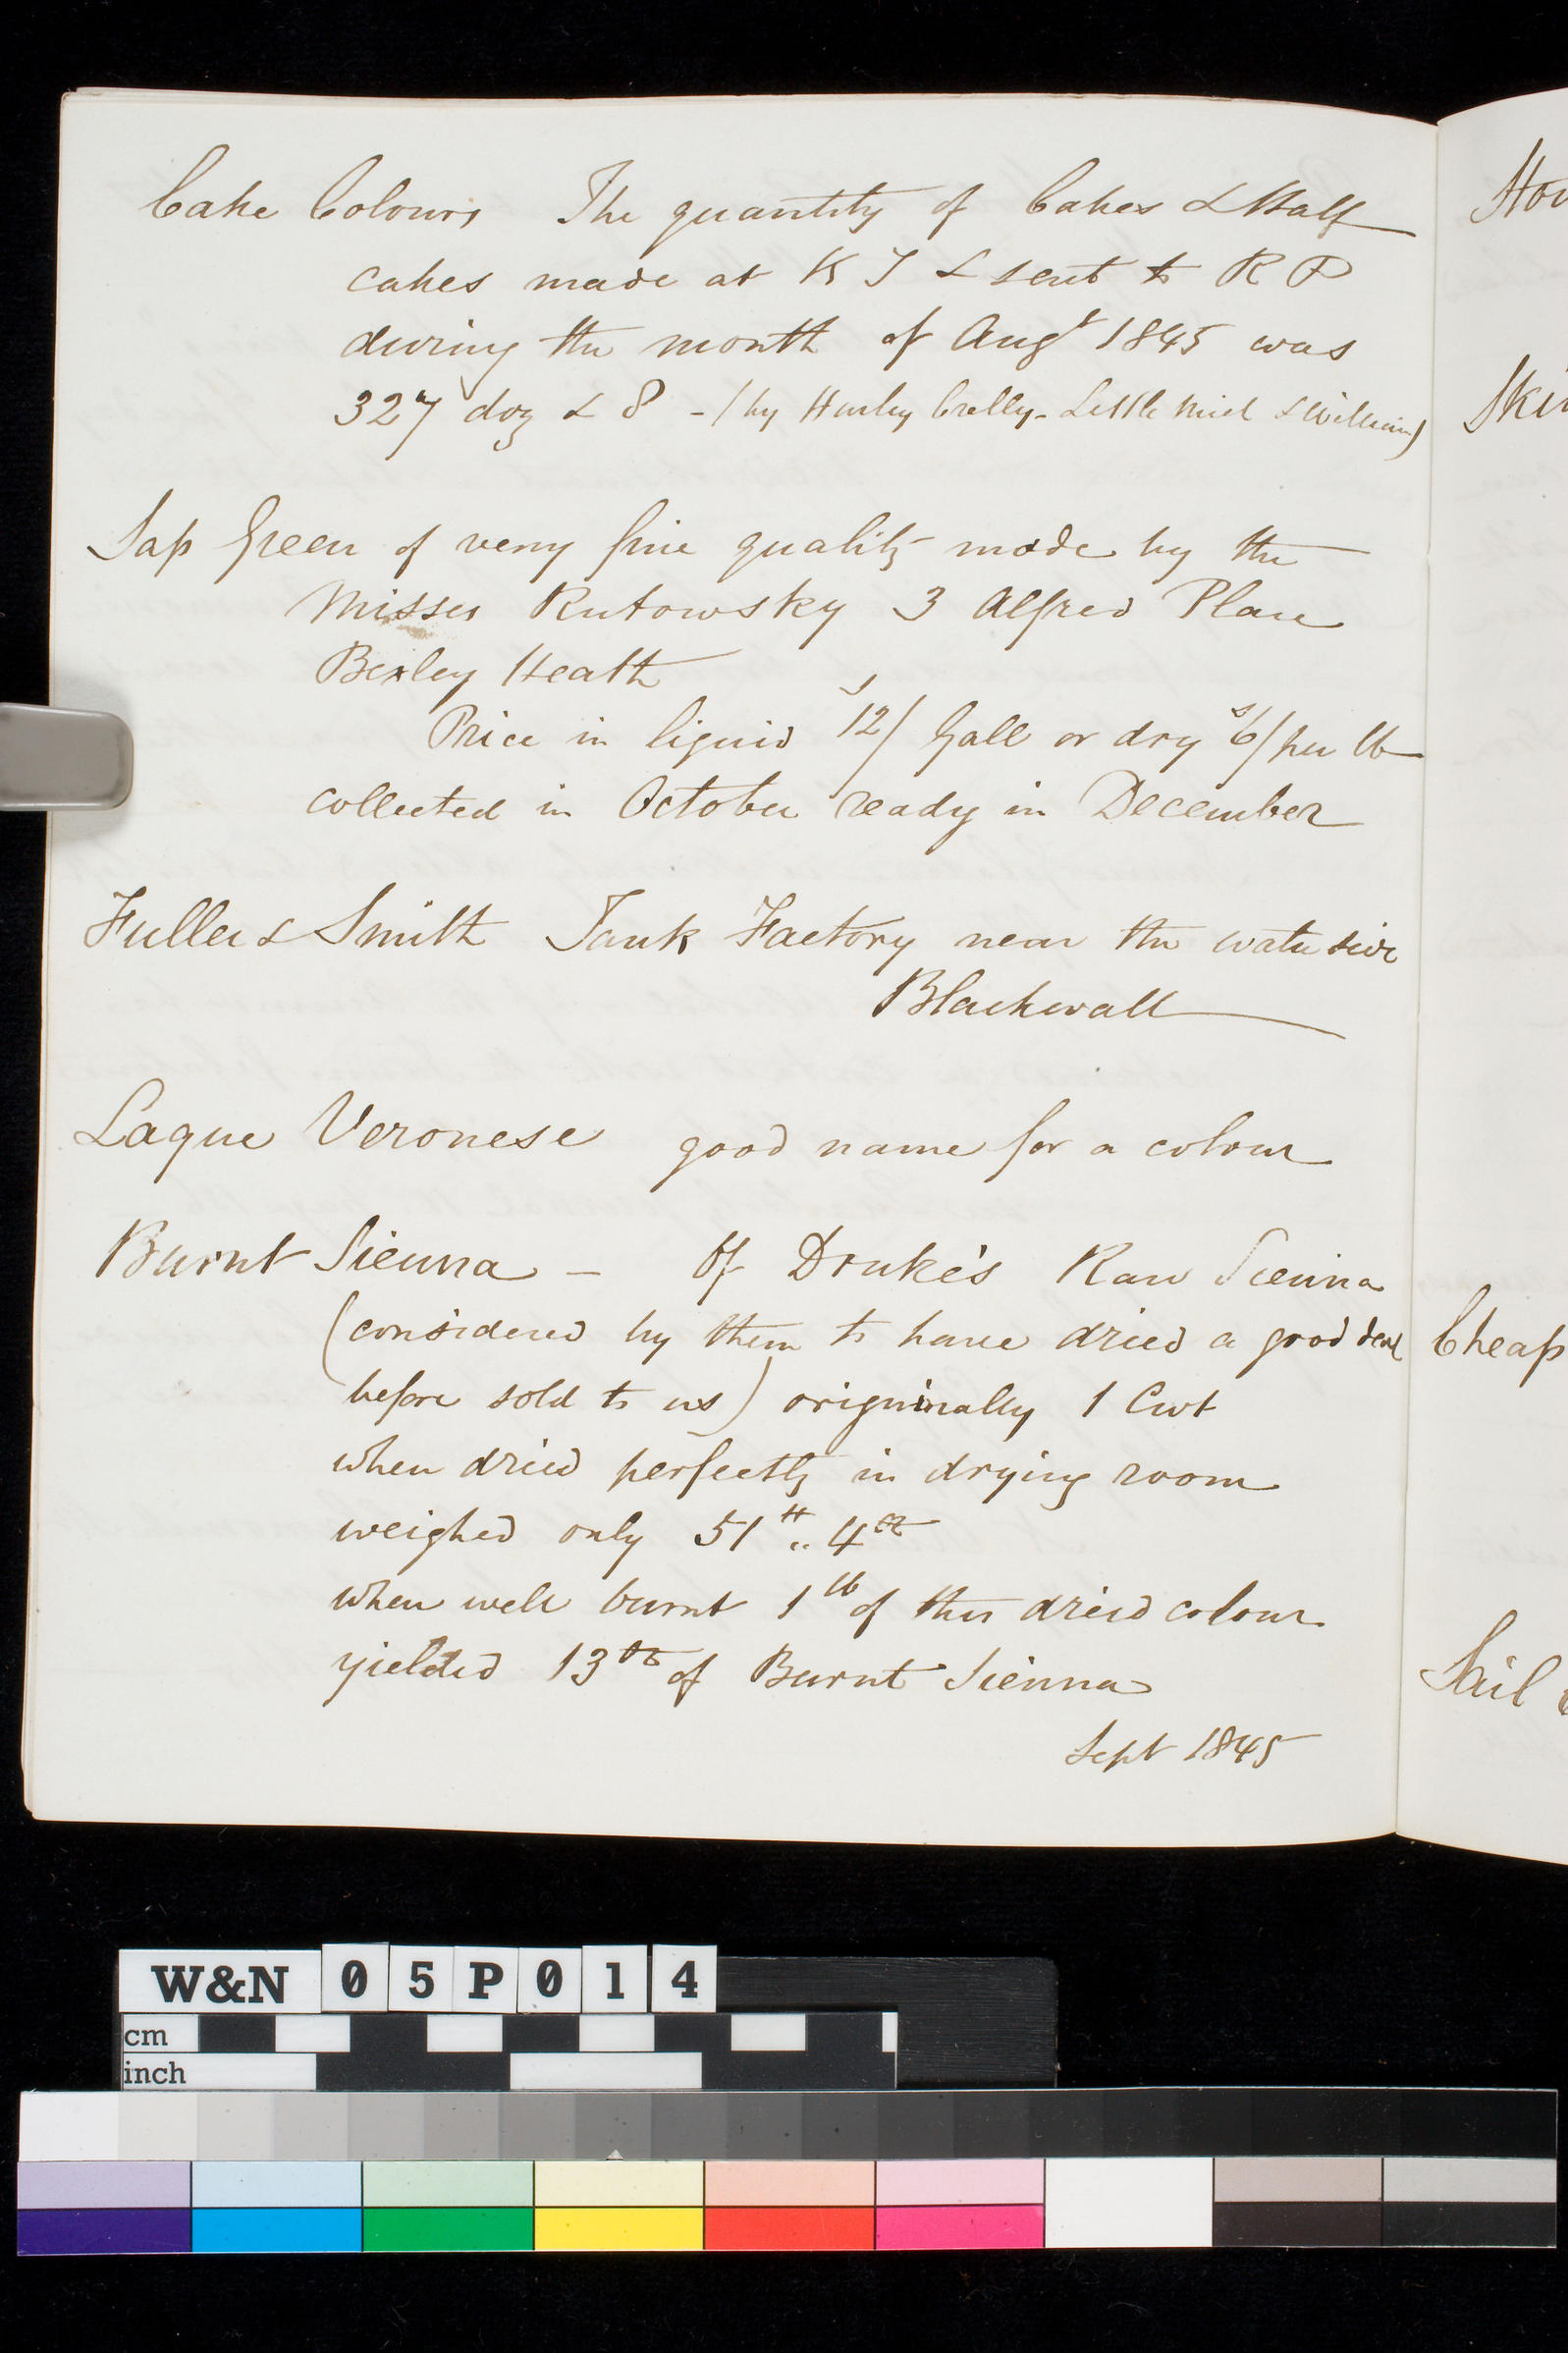 Cake Colours The quantity of Cakes & Half
cakes made at K T & sent to R P
during the month of Augt 1845 was
327 doz & 8 - (by Hurley Crelly - Little Mick & William)
Sap Green of very fine quality made by the
Misses Rutowsky 3 Alfred Place
Bexley Heath
Price in liquid s12/ Gall or dry s6/ per lb
collected in October ready in December
Fuller & Smith Tank Factory near the water side
Blackwall
Laque Veronese good name for a colour
Burnt Sienna - Of Druke's Raw Sienna
(considered by them to have dried a good deal
before sold to us) originially 1 Cwt
when dried perfectly in drying room
weighed only 51 lb .. 4 oz
when well burnt 1 lb of this dried colour
yielded 13 oz of Burnt Sienna
Sept 1845
Cheap
W&N 05P014
cm
inch